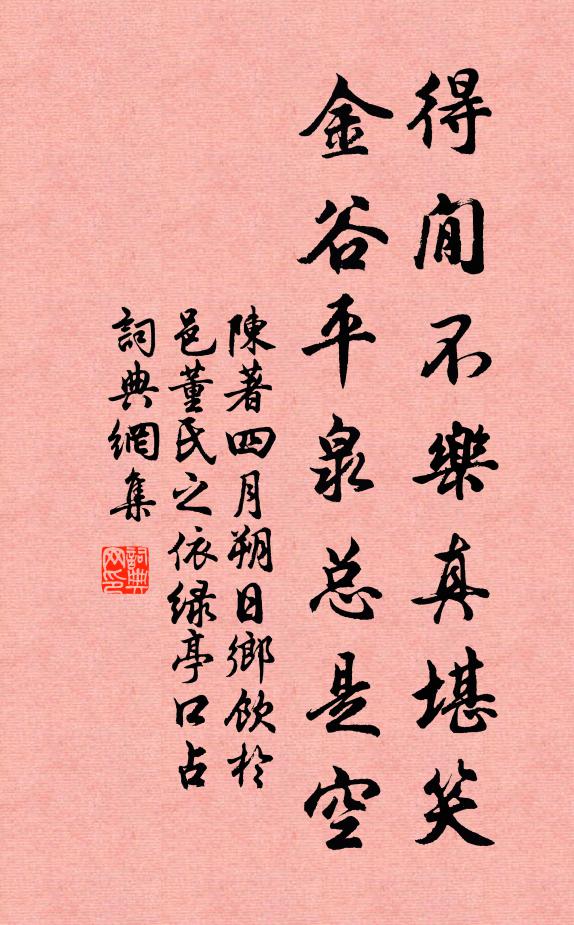 得閒不樂真堪笑
金谷平泉总是空
陳著四月朔日鄉飲於
邑董氏之依緑亭口占
詞典網集
詞典网印